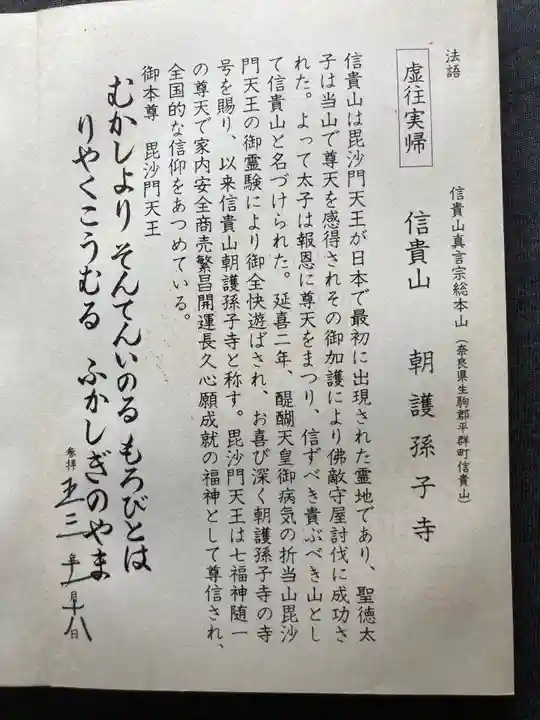 法語
虚往実帰
信貴山真言宗総本山(奈良県生駒郡平群町信貴山)
信貴山 朝護孫子寺
信貴山は毘沙門天王が日本で最初に出現された霊地であり、聖徳太
子は当山で尊天を感得されその御加護により佛敵守屋討伐に成功さ
れた。よって太子は報恩に尊天をまつり、信ずべき貴ぶべき山とし
て信貴山と名づけられた。延喜二年、醍醐天皇御病気の折当山毘沙
門天王の御霊験により御全快遊ばされ、お喜び深く朝護孫子寺の寺
号を賜り、以来信貴山朝護孫子寺と称す。毘沙門天王は七福神随一
の尊天で家内安全商売繁昌開運長久心願成就の福神として尊信され、
全国的な信仰をあつめている。
御本尊 毘沙門天王
むかしより そんてんいのる もろびとは
りやくこうむる ふかしぎのやま
参拝 五三年十一月十八日